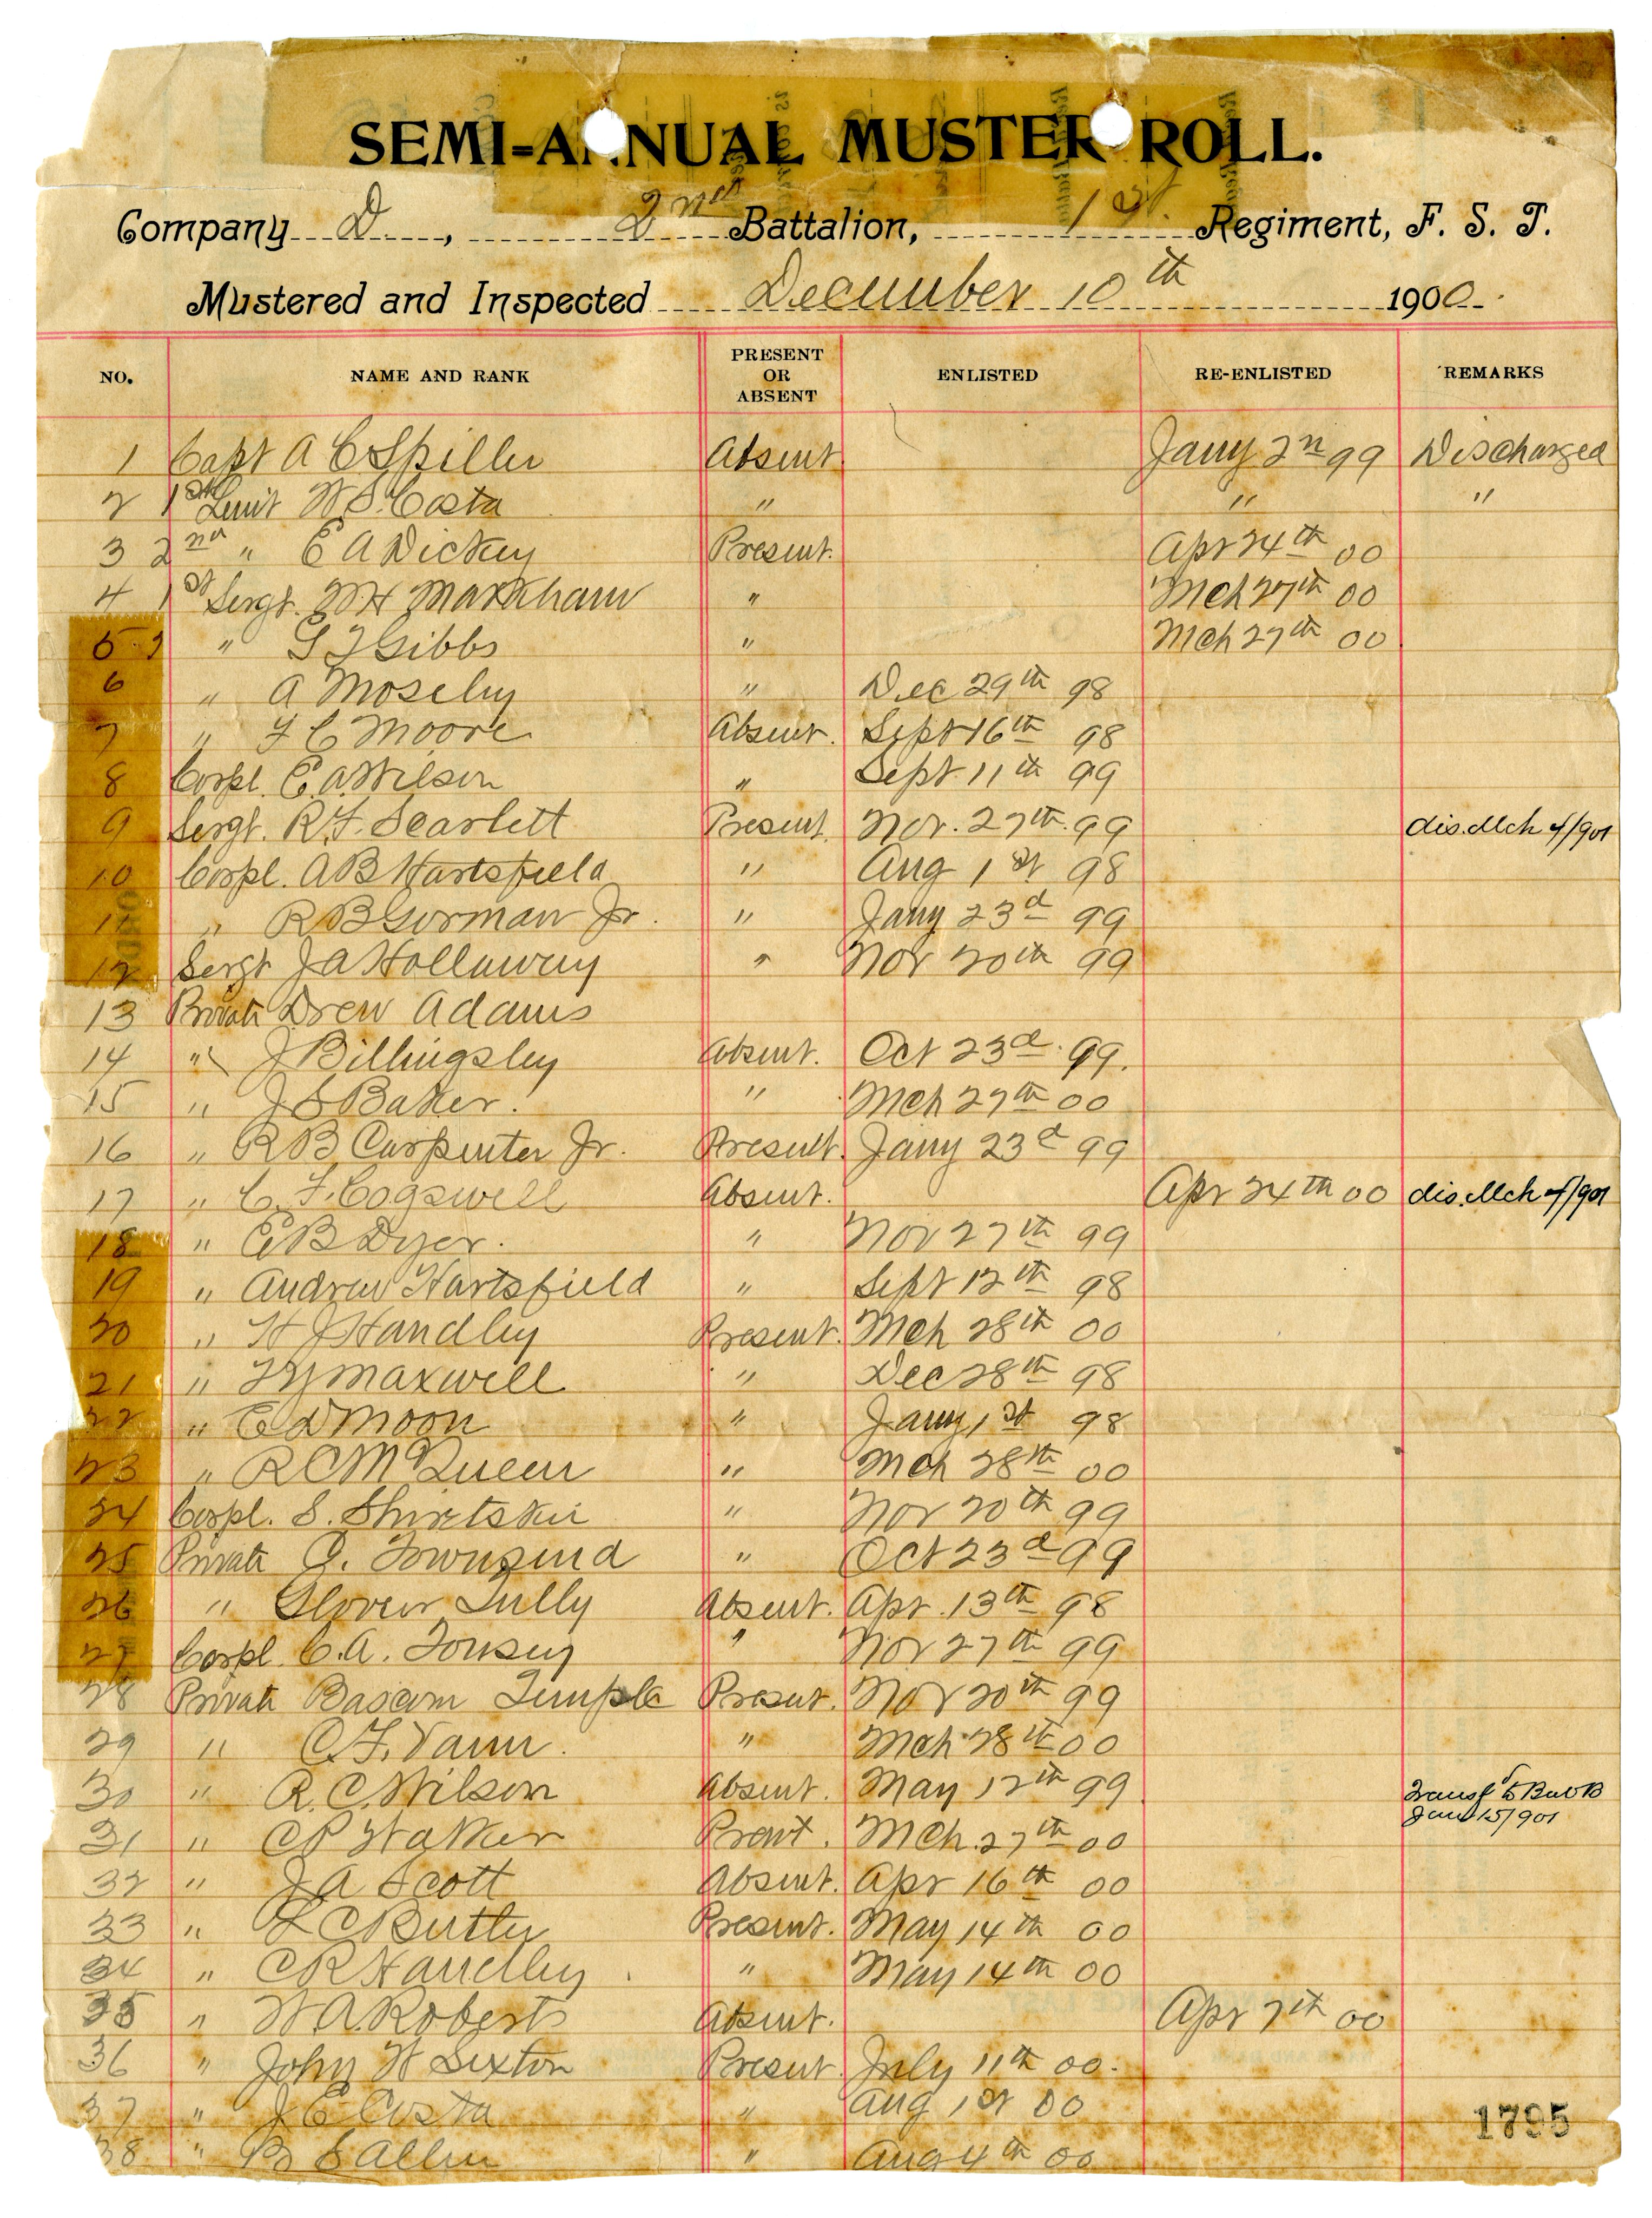 SEMI-ANNUAL MUSTER ROLL.
Company D., 2nd Battalion, 1st. Regiment, F. S. T.
Mustered and Inspected December 10th 1900.
NO. NAME AND RANK PRESENT OR ABSENT ENLISTED RE-ENLISTED REMARKS
1 Capt A C Spiller Absent Jany 2n 99 Discharged
2 1st Lieut W. S. Costa " " "
3 2nd " E A Dickey Present. Apr 24th 00
4 1st Sergt. M H Markham " Mch 27th 00
5 " G T Gibbs " Mch 27th 00
6 " A Moseley " Dec 29th 98
7 " F C Moore Absent. Sept 16th 98
8 Corpl. E. A. Wilson " Sept 11th 99
9 Sergt. R. F. Scarlett Present Nov. 27th. 99 dis. Mch 4/901
10 Corpl. A B Hartsfield " Aug 1st 98
11 " R B Gorman Jr. " Jany 23d 99
12 Sergt J A Hollaway " Nov 20th 99
13 Private Drew Adams
14 " J Billingsley Absent. Oct 23d. 99.
15 " J S Baker. " Mch 27th 00
16 " R B Carpenter Jr. Present. Jany 23d 99
17 " C. F. Cogswell Absent. Apr 24th 00 dis. Mch 4/901
18 " E B Dyer. " Nov 27th 99
19 " Andrew Hartsfield " Sept 12th 98
20 " H J Handley Present. Mch 28th 00
21 " Maxwell " Dec 28th 98
22 " E D Moon " Jany 1st 98
23 " R C McQueen " Mch 28th 00
24 Corpl. S. " Nov 20th 99
25 Private Townsend " Oct 23d 99
26 " Glover Tully Absent. Apr. 13th 98
27 Corpl. C. A. Tousey " Nov 27th 99
28 Private Bascom Temple Present. Nov 20th 99
29 " C. F. Vann. " Mch 28th 00
30 " R. C. Wilson Absent. May 12th 99 Transfd to Bat B
Jan 15/901
31 " C P Walker Presnt. Mch. 27th 00
32 " J A Scott Absent. Apr 16th 00
33 " L C Butler Present. May 14th 00
34 " C R Handley. " May 14th 00
35 " W. A. Roberts Absent. Apr 7th 00
36 " John W Sexton Present July 11th 00.
37 " J E Costa " Aug 1st 00
38 " B S Allen " Aug 4th 00
1795